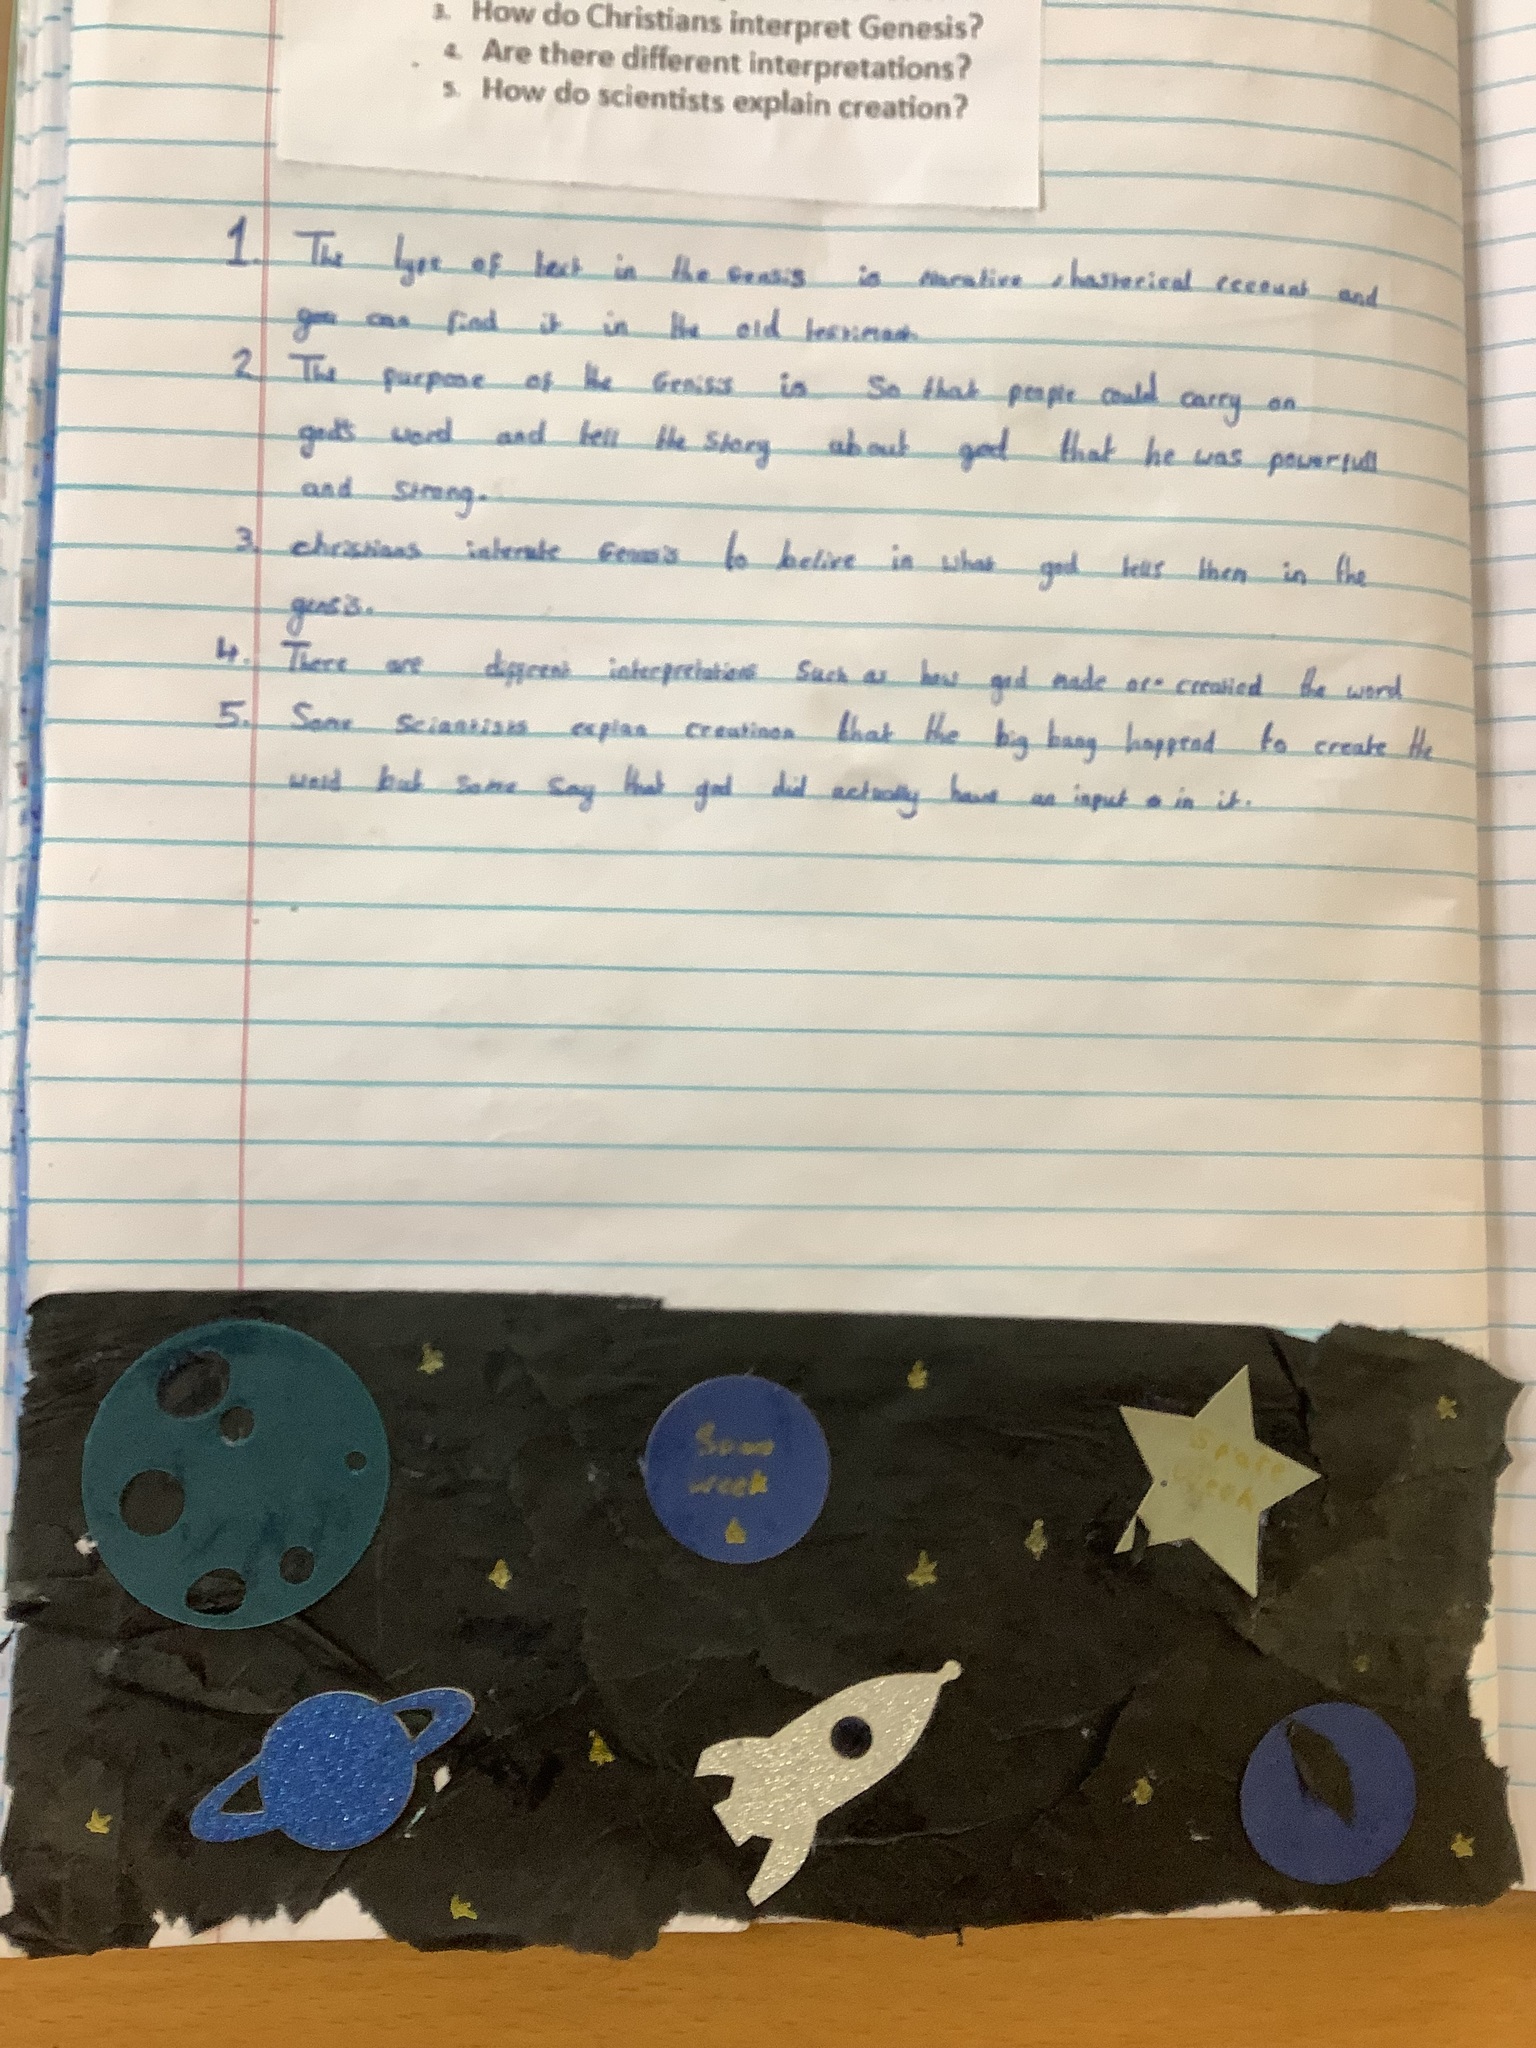 3. How do Christians interpret Genesis?
4. Are there different interpretations?
5. How do scientists explain creation?
1. The type of text in the Gensis is narative, hasterical eccount and
you can find it in the old
2. The purpose of the Genisis is So that people could carry on
god's word and tell the Story about god that he was powerfull
and strong.
3. christians interute Genesis to belive in what god tells them in the
gensis.
4. There are different interpretations Such as how god made or created the word
5. Some Sciantists explan creatinon that the big bang happend to create the
word but some Say that god did actually have an input in it.
week
Space
week